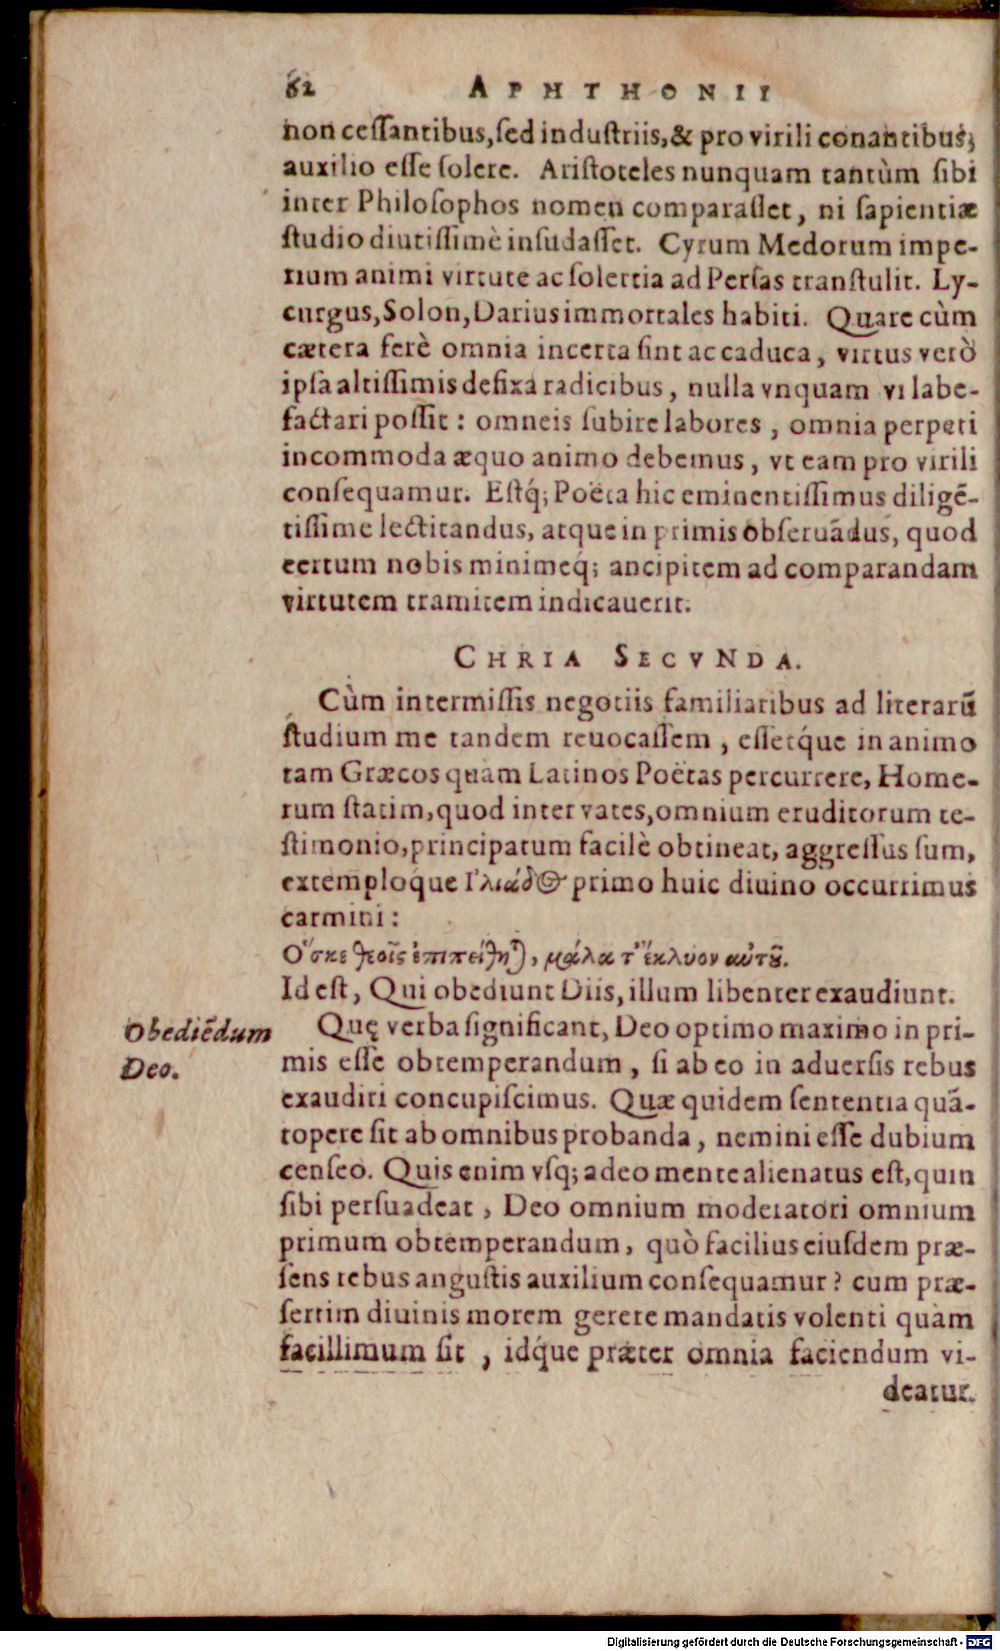 62 APHTHONII
non cessantibus, sed industriis, & pro virili conantibus,
auxilio esse solere. Aristoteles nunquam tantùm sibi
inter Philosophos nomen comparasset, ni sapientiæ
studio diutissimè insudasset. Cyrum Medorum impe-
rium animi virtute ac solertia ad Persas transtulit. Ly-
curgus, Solon, Darius immortales habiti. Quare cùm
cætera ferè omnia incerta sint ac caduca, virtus verò
ipsa altissimis defixa radicibus, nulla vnquam vi labe-
factari possit: omneis subire labores, omnia perpeti
incommoda æquo animo debemus, vt eam pro virili
consequamur. Estq́; Poëta hic eminentissimus diligē-
tissime lectitandus, atque in primis obseruādus, quod
certum nobis minimeq́; ancipitem ad comparandam
virtutem tramitem indicauerit.
CHRIA SECVNDA.
Cùm intermissis negotiis familiaribus ad literarū
studium me tandem reuocassem, essetq́ue in animo
tam Græcos quàm Latinos Poëtas percurrere, Home-
rum statim, quod inter vates, omnium eruditorum te-
stimonio, principatum facilè obtineat, aggressus sum,
extemploque Ἰλιάδος primo huic diuino occurrimus
carmini:
Ὅσκε θεοῖς ἐπιπείθηται, μάλα τ' ἔκλυον αὐτοῦ.
Id est, Qui obediunt Diis, illum libenter exaudiunt.
Quę verba significant, Deo optimo maximo in pri-
mis esse obtemperandum, si ab eo in aduersis rebus
exaudiri concupiscimus. Quæ quidem sententia quā-
topere sit ab omnibus probanda, nemini esse dubium
censeo. Quis enim vsq; adeo mente alienatus est, quin
sibi persuadeat, Deo omnium moderatori omnium
primum obtemperandum, quò facilius eiusdem præ-
sens rebus angustis auxilium consequamur? cum præ-
sertim diuinis morem gerere mandatis volenti quàm
facillimum sit, idq́ue præter omnia faciendum vi-
deatur.
Obediēdum
Deo.
Digitalisierung gefördert durch die Deutsche Forschungsgemeinschaft - DFG